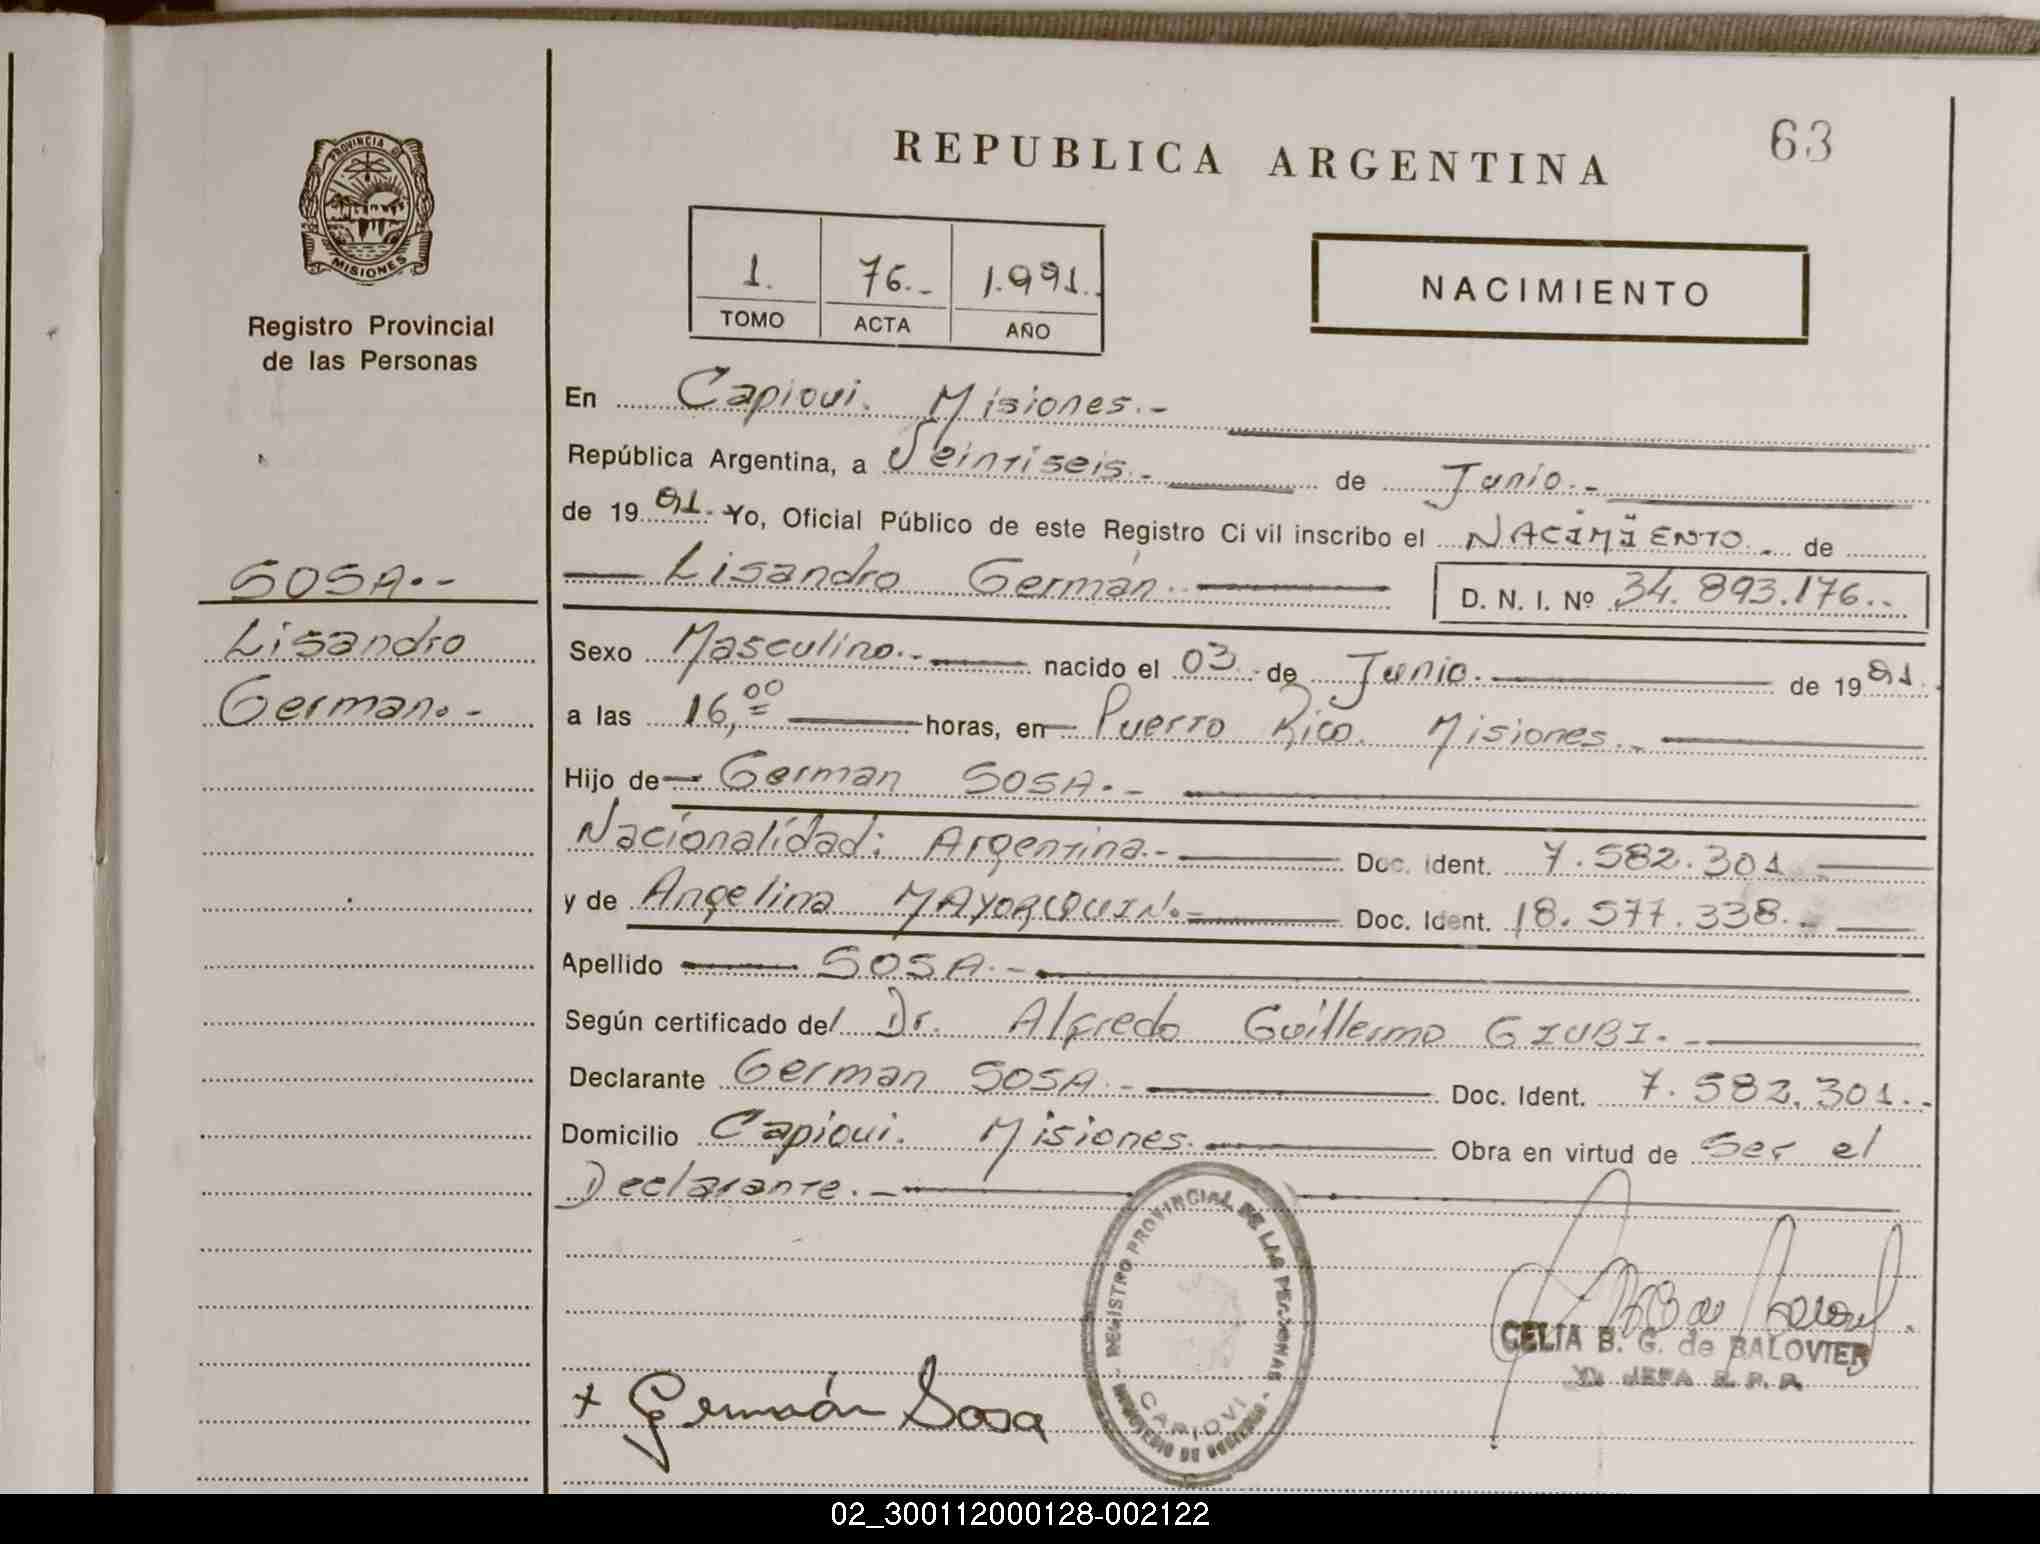 63
REPUBLICA ARGENTINA
PROVINCIA DE
MISIONES
Registro Provincial
de las Personas
1. 76.- 1.991.
TOMO ACTA AÑO
NACIMIENTO
En Capiovi. Misiones.-
República Argentina, a Veintiseis.- de Junio.-
de 19 91.- Yo, Oficial Público de este Registro Civil inscribo el NACIMIENTO.- de
SOSA.-
Lisandro Germán.
D. N. I. Nº 34.893.176.-
Lisandro
German.-
Sexo Masculino.- nacido el 03.- de Junio. de 19 91.
a las 16,00 horas, en Puerto Rico. Misiones.-
Hijo de German SOSA.-
Nacionalidad: Argentina.- Doc. Ident. 7.582.301.-
y de Angelina MAYORQUIN.- Doc. Ident. 18.577.338.-
Apellido SOSA.-
Según certificado del Dr. Alfredo Guillermo GIUBI.-
Declarante German SOSA.- Doc. Ident. 7.582.301.-
Domicilio Capiovi. Misiones. Obra en virtud de Ser el
Declarante.-
REGISTRO PROVINCIAL DE LAS PERSONAS
CAPIOVI
MINISTERIO DE GOBIERNO
CELIA B. G. de BALOVIER
JEFA R. P. P.
+ Germán Sosa
02_300112000128-002122